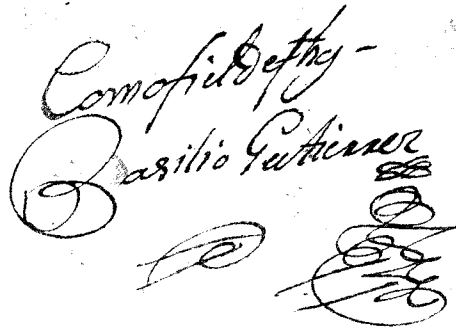 Como fiel de fhg-
Basilio Gutierrez